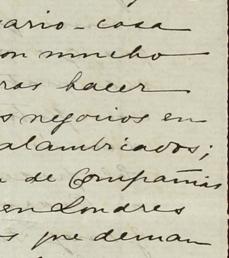 ario - casa
on mucho
ras hacer
s negocios en
alambicados;
de Compañias
en Londres
s que deman